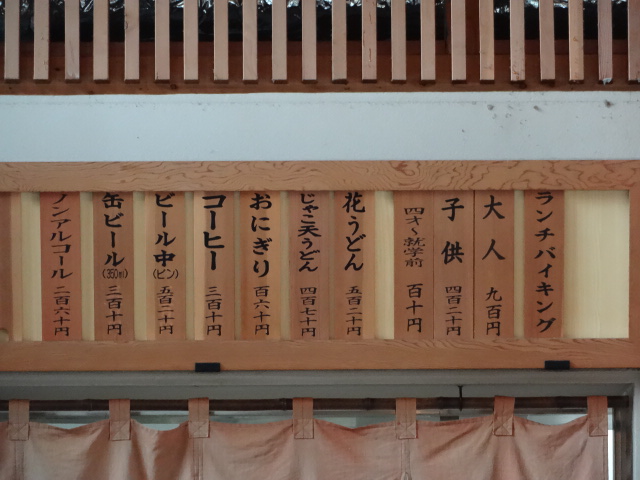 ランチバイキング
大人 九百円
子供 四百二十円
四才〜就学前 百十円
花うどん 五百二十円
じゃこ天うどん 四百七十円
おにぎり 百六十円
コーヒー 三百十円
ビール中(ビン) 五百二十円
缶ビール(350ml) 三百十円
ノンアルコール 二百六十円